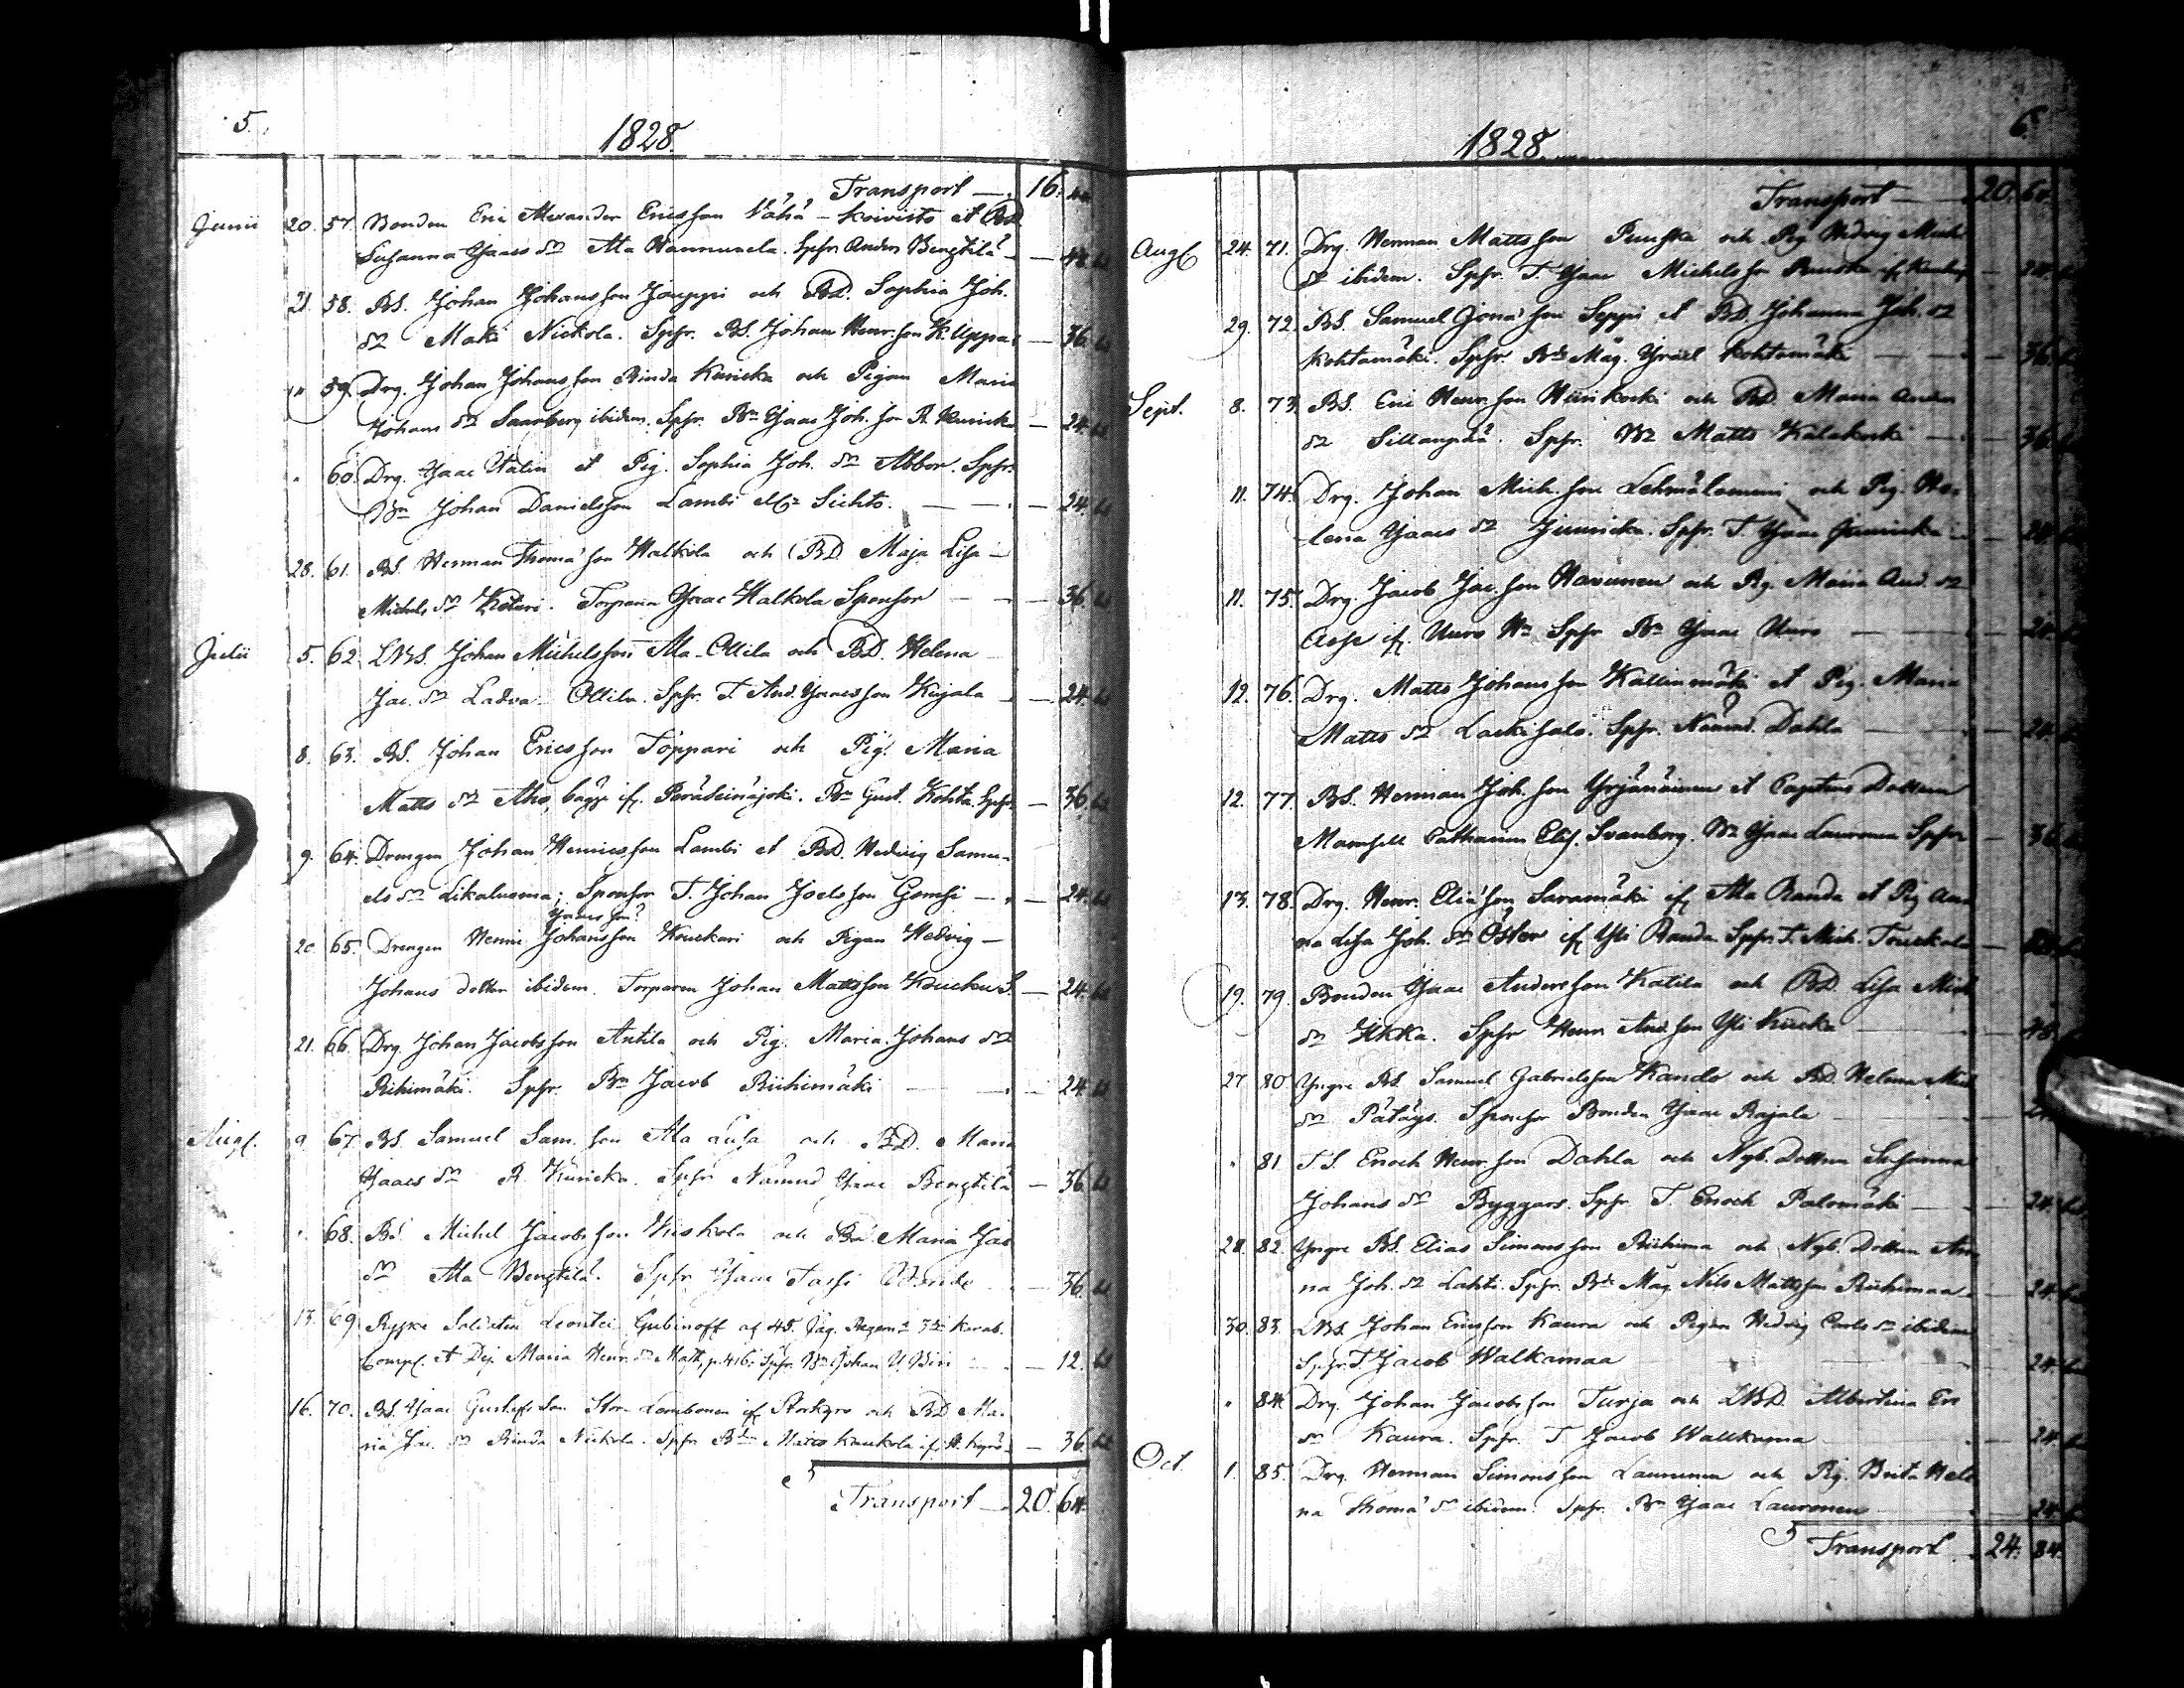 5.
1828.
Transport — 16.
Junii 20. 57. Bonden Eric Alexander Ericsson Vähä-Koivisto et BD.
Susanna Isaacs dr Ala Wannuala. Spsr Anders Bengtilä — 48.
21. 58. BS. Johan Johansson Jouppi och BD. Sophia Joh.
dr Maki Nickola. Spsr. BS. Johan Henr.son — 36.
" 59. Drg. Johan Johansson Rinda Kuricka och Pigan Maria
Johans dr Saarberg ibidem. Spsr. Bn Isaac Joh.son R. Kuricka — 24.
" 60. Drg. Isaac Valin et Pig. Sophia Joh. dr Abbor. Spsr.
Bn Johan Danielsson Lambi Sichto. — 24.
28. 61. BS. Herman Thomasson Walkola och BD Maja Lisa
Michels dr Koturi. Torparen Isaac Walkola Sponsor — 36.
Julii 5. 62. LBS. Johan Michelsson Ala-Ollila och BD. Helena
Jac. dr Ladva Ollila. Spsr. T. And. Isaacsson Kujala — 24.
8. 63. BS. Johan Ericsson Töppari och Pig. Maria
Matts dr Aho, bägge if. Peräseinäjoki. Bn Gust. Kohta. Spsr. — 36.
9. 64. Drengen Johan Henricsson Lambi et BD. Hedvig Samu-
els dr Likaluoma; Sponsor T. Johan Joelsson Gomsi — 24.
Isaacsson?
20. 65. Drengen Henric Johansson Kouckari och Pigan Hedvig
Johans dotter ibidem. Torparen Johan Mattsson Koucku S. — 24.
21. 66. Drg. Johan Jacobsson Antila och Pig. Maria Johans dr
Riihimäki. Spsr. Bn Jacob Riihimäki — 24.
Aug. 9. 67. BS. Samuel Sam.son Ala Luha och BD. Maria
Isaacs dr R. Kuricka. Spsr Nämnd Isaac Bengtilä — 36.
" 68. Bs Michel Jacobsson Kiskola och Bd Maria Jac
dr Ala Bengtilä. Spsr. Isaac Tassi — 36.
13. 69. Ryske Soldaten Leontei Gubinoff af 45. Jäg. Regem. 3
Comp. et Dej. Maria Henr. dr Matt, p. 416; Spsr. Bn Johan — 12.
16. 70. BS. Isaac Gustafsson Stor Lombonen if. Storkyro och BD Ma-
ria Jac. dr Rinda Nickola. Spsr. Matts Kaukola if. St. Kyro — 36.
Transport — 20. 64.
6.
1828.
Transport — 20. 64.
Aug. 24. 71. Drg. Herman Mattsson Punska och Pig Hedvig Mich
dr ibidem. Spsr. T. Isaac Michelsson Punska — 24.
29. 72. BS. Samuel Jonasson Seppi et BD Johanna Joh. dr
Kohtamäki. Spsr. Måg. Israel Kohtamäki — 36.
Sept. 8. 73. BS. Eric Henr.son Hiirikoski och BD Maria Anders
dr Sillanpää. Spsr. Bn Matts Kalakoski — 36.
11. 74. Drg. Johan Mich.son Lehmälammi och Pig. He-
lena Isaacs dr Junnicka. Spsr. T. Isaac Junnicka — 24.
11. 75. Drg. Jacob Jac.son Havunen och Pig. Maria And. dr
if. Uuro Spsr Bn Isaac Uuro — 24.
12. 76. Drg. Matts Johansson Kallinmäki et Pig. Maria
Matts dr Lackisalo. Spsr. Nämnd. Dahla — 24.
12. 77. BS. Herman Joh.son Yrjänäinen et Capitens Dottren
Mamsell Catharina Elis. Svanberg. Bn Isaac Lauronen Spsr — 36.
13. 78. Drg. Henr. Eliasson Saramäki if. Ala Randa et Pig An-
na Lisa Joh. dr Öster if. Yli Randa. Spsr. T. Mich. —
19. 79. Bonden Isaac Andersson Katila och BD. Lisa Mich
dr Ikka. Spsr Henr And.son Yli Kucka — 48.
27. 80. Yngre BS. Samuel Gabrielsson Kando och BD. Helena Mich
dr Pätäys. Sponsor Bonden Isaac Rajala
" 81. T.S. Enoch Henr.son Dahla och Nyb. Dottren Susanna
Johans dr Byggars. Spsr. T. Enoch Palomäki — 24.
28. 82. Yngre BS. Elias Simonsson Riihima och Nyb. Dottren An
na Joh. dr Lahti. Spsr. Måg Nils Mattsson Riihimaa — 24.
30. 83. LBS. Johan Ericsson Kaura och Pigan Hedvig Carls dr ibidem
Spsr. T. Jacob Walkamaa — 24.
" 84. Drg. Johan Jacobsson Turja och LBD. Albertina Eric
dr Kaura. Spsr. T Jacob Wallkama — 24.
Oct. 1. 85. Drg. Herman Simonsson Lauronen och Pig. Brita Hele
na Thomä dr ibidem. Spsr. Bn Isaac Lauronen — 24.
Transport. 24. 84.